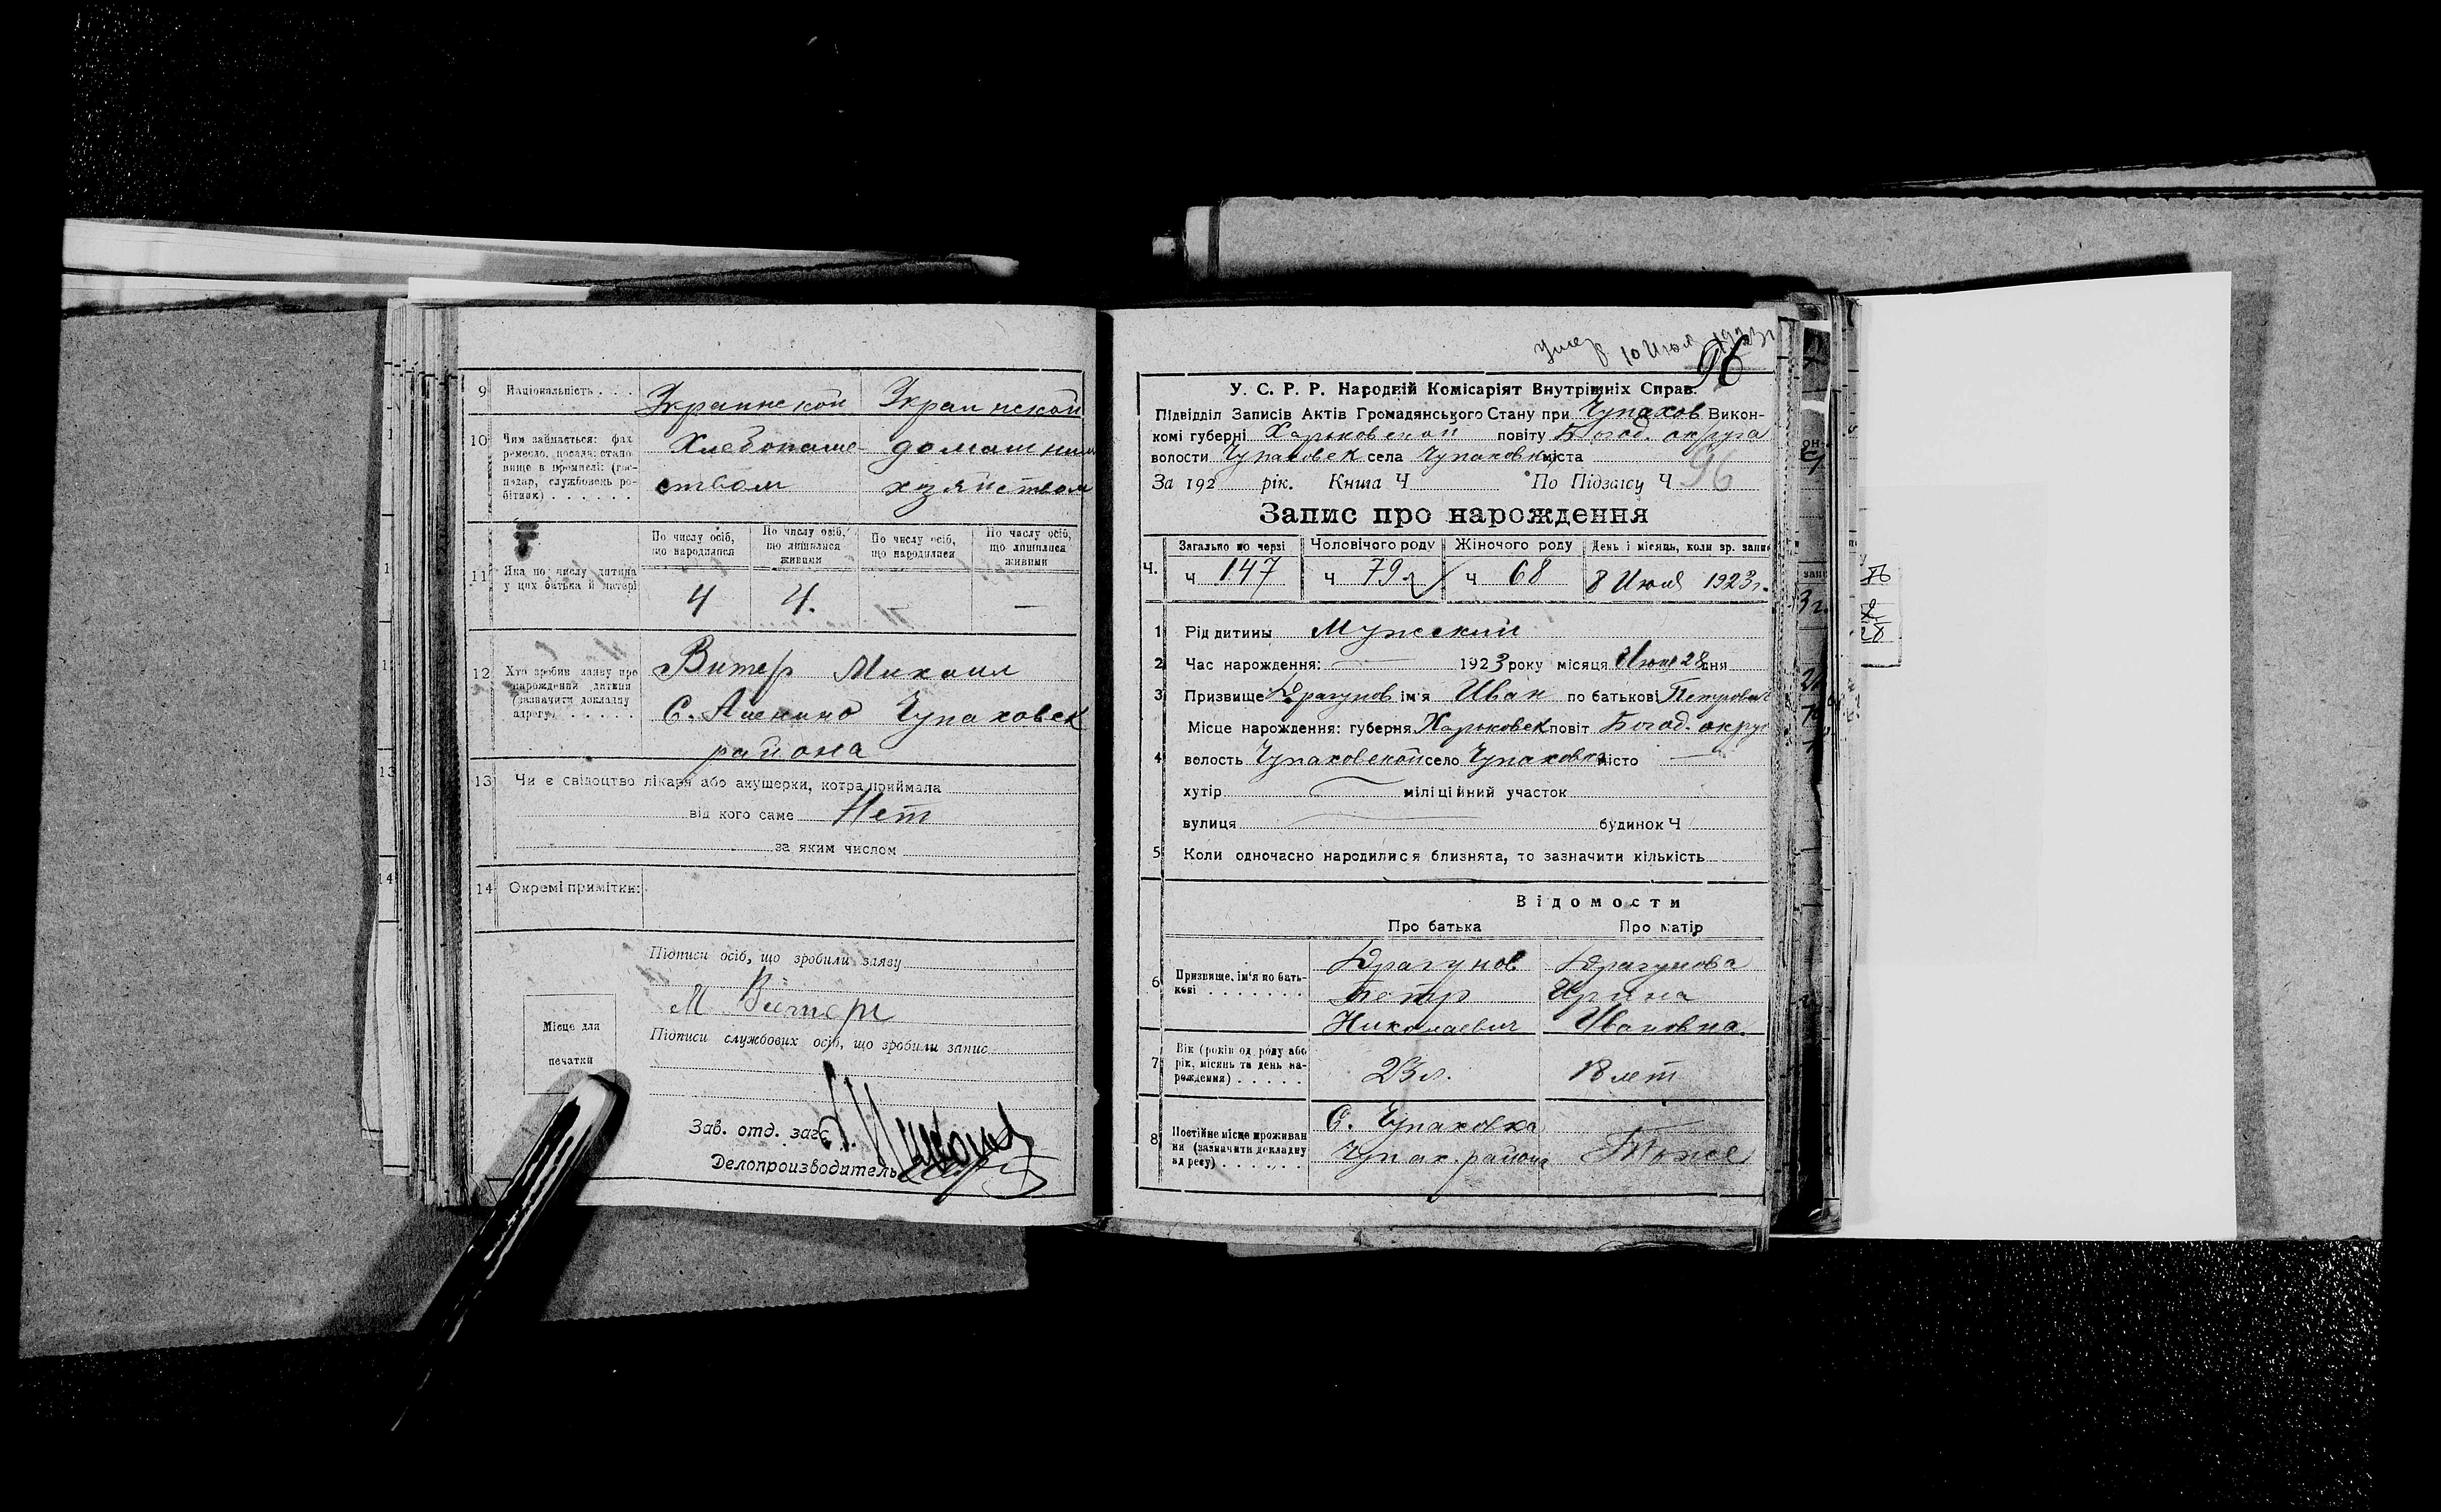 9 Національність . . . Украинской Украинской
10 Чим займається: фах ремесло, посада: стано- Хлебопаше- домашним
вище в промислі: (гос-
подар, службовець ро- ством хозяйством
бітник) . . . . . .
По числу осіб, що народилися По числу осіб, що лишилися живими По числу осіб, що народилися По числу осіб, що лишилися живими
11 Яка по числу дитина у цих батька й матері 4 4. — —
12 Хто зробив заяву про Витер Михаил
нарождення дитини
(зазначити докладну С. Чупаховск
адресу) . . . . . района
13 Чи є свідоцтво лікаря або акушерки, котра приймала
від кого саме Нет
за яким числом
14 Окремі примітки:
Підписи осіб, що зробили заяву
М Витерь
Місце для печатки
Підписи службових осіб, що зробили запис
Зав. отд. загс
Делопроизводитель
умер 10 Июля 1923г
96
У. С. Р. Р. Народній Комісаріят Внутрішніх Справ.
Підвідділ Записів Актів Громадянського Стану при Чупахов Викон-
комі губерні Харьковской повіту Богод. округа
волости Чупаховск села Чупаховки міста
За 192 рік. Книга Ч По Підзапису Ч 96
Запис про нарождення
Загально по черзі Чоловічого роду Жіночого роду День і місяць, коли зр. запис
Ч. ч 147 ч 79 ч 68 8 Июля 1923г.
1 Рід дитины Мужский
2 Час нарождення: — 1923 року місяця Июня 28 дня
3 Призвище Драгунов ім'я Иван по батькові Петрович
Місце нарождення: губерня Харьковск повіт Богод. округ
4 волость Чупаховской село Чупаховка місто —
хутір — міліційний участок
вулиця — будинок Ч
5 Коли одночасно народилися близнята, то зазначити кількість
Відомости
Про батька Про матір
6 Призвище, ім'я по бать- Драгунов Драгунова
кові . . . . . . . Петр Ирина
Николаевич Ивановна
7 Вік (років од роду або
рік, місяць та день на- 23 л. 18 лет
рождения) . . . . .
8 Постійне місце проживан С. Чупаховка
ня (зазначити докладну Чупах. района Тоже
адресу) . . . . . .